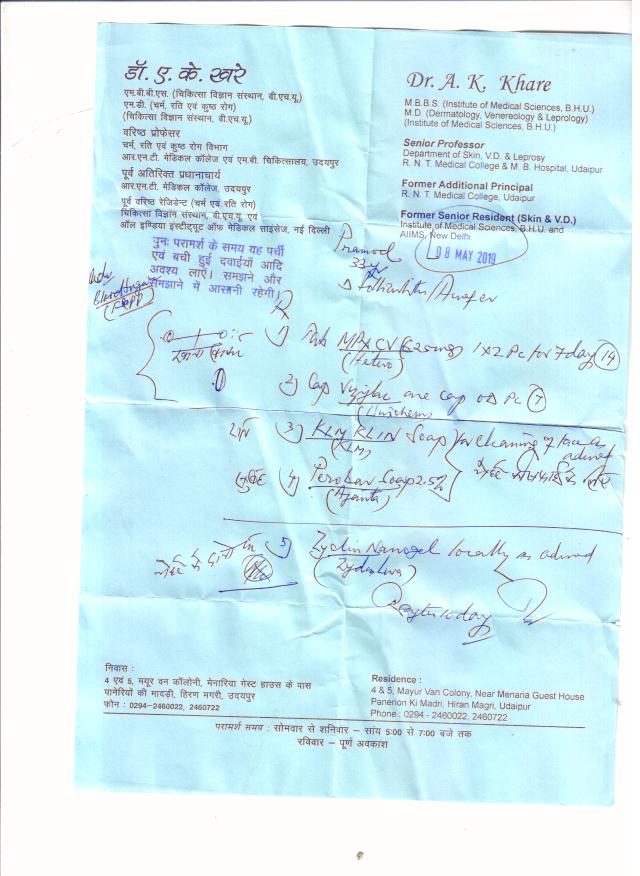 डॉ. ए. के. खरे
एम.बी.बी.एस. (चिकित्सा विज्ञान संस्थान, बी.एच.यू.)
एम.डी. (चर्म, रति एवं कुष्ठ रोग)
(चिकित्सा विज्ञान संस्थान, बी.एच.यू.)
वरिष्ठ प्रोफेसर
चर्म, रति एवं कुष्ठ रोग विभाग
आर.एन.टी. मेडिकल कॉलेज एवं एम.बी. चिकित्सालय, उदयपुर
पूर्व अतिरिक्त प्रधानाचार्य
आर.एन.टी. मेडिकल कॉलेज, उदयपुर
पूर्व वरिष्ठ रेजिडेन्ट (चर्म एवं रति रोग)
चिकित्सा विज्ञान संस्थान, बी.एच.यू. एवं
ऑल इण्डिया इंस्टीट्यूट ऑफ मेडिकल साइसेज, नई दिल्ली
Dr. A. K. Khare
M.B.B.S. (Institute of Medical Sciences, B.H.U.)
M.D. (Dermatology, Venereology & Leprology)
(Institute of Medical Sciences, B.H.U.)
Senior Professor
Department of Skin, V.D. & Leprosy
R. N. T. Medical College & M. B. Hospital, Udaipur
Former Additional Principal
R. N. T. Medical College, Udaipur
Former Senior Resident (Skin & V.D.)
Institute of Medical Sciences, B.H.U. and
AIIMS, New Delhi.
08 MAY 2019
पुनः परामर्श के समय यह पर्ची
एवं बची हुई दवाईयाँ आदि
अवश्य लाऐं। समझने और
समझाने में आसानी रहेगी।
Pramod
33
1) Tab (625mg) 1x2 Pc for 7 day (14)
(Hetero)
2) Cap one cap OD Pc (7)
(Unichem)
3) KLM KLIN Soap for cleaning of face as advised
(KLM)
4) Perobar Soap 2.5%
(Ajanta)
5) Nanogel locally as advised
निवास :
4 एवं 5, मयूर वन कॉलोनी, मेनारिया गेस्ट हाउस के पास
पानेरियों की मादड़ी, हिरण मगरी, उदयपुर
फोन : 0294-2460022, 2460722
Residence :
4 & 5, Mayur Van Colony, Near Menaria Guest House
Panerion Ki Madri, Hiran Magri, Udaipur
Phone : 0294 - 2460022, 2460722
परामर्श समय : सोमवार से शनिवार – सांय 5:00 से 7:00 बजे तक
रविवार – पूर्ण अवकाश